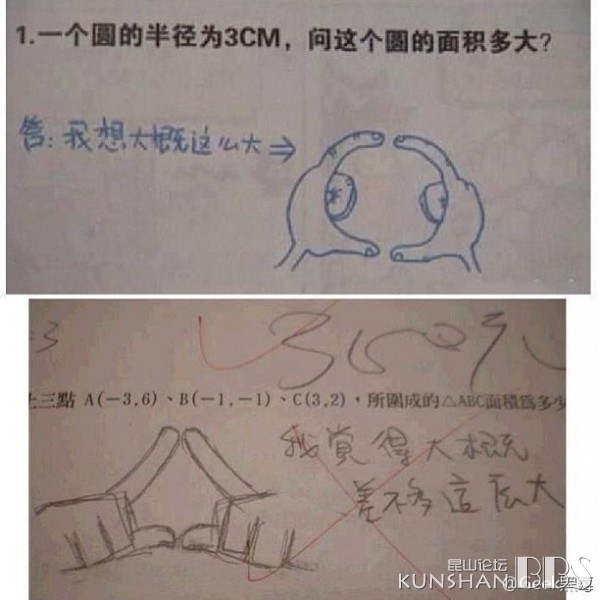 1.一个圆的半径为3CM，问这个圆的面积多大?
答:我想大概这么大⇒
3
上三點 A(−3,6)、B(−1,−1)、C(3,2)，所圍成的△ABC面積為多少
我覺得大概
差不多這麼大
昆山论坛
BBS
KUNSHAN @Geek黑哥